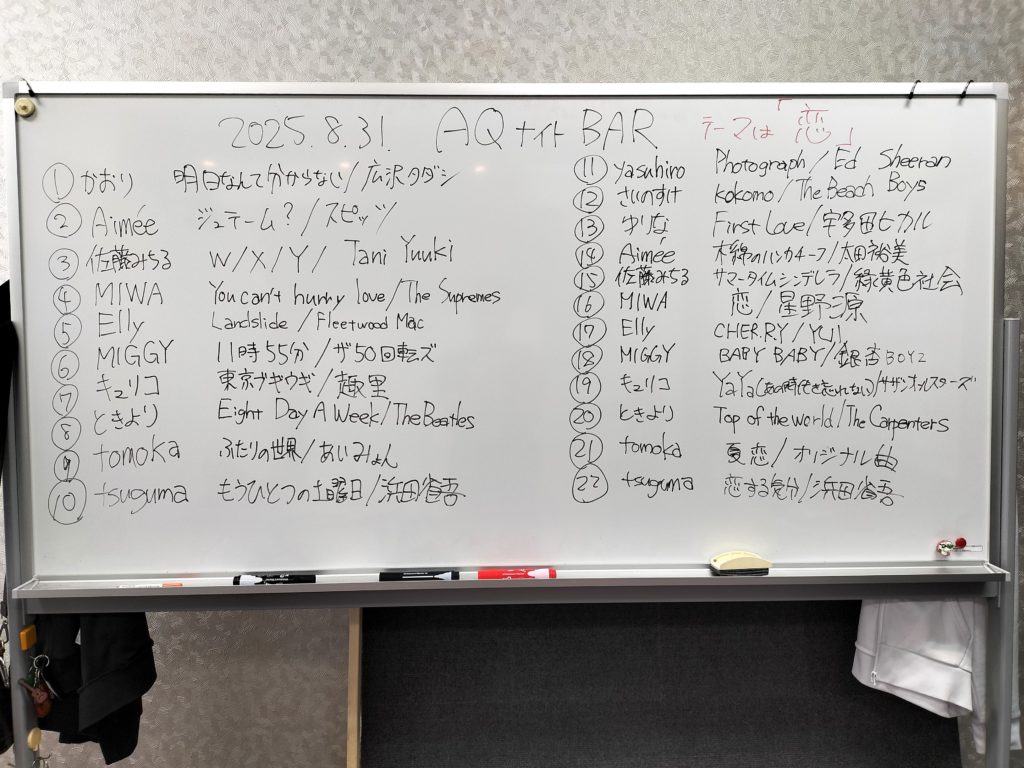 2025.8.31. AQナイト BAR テーマは「恋」
① かおり 明日なんて分からない/広沢タダシ
② Aimée ジュテーム?/スピッツ
③ 佐藤みちる W/X/Y/ Tani Yuuki
④ MIWA You can't hurry love/The Supremes
⑤ Elly Landslide/Fleetwood Mac
⑥ MIGGY 11時55分/ザ50回転ズ
⑦ キュリコ 東京ブギウギ/趣里
⑧ ときより Eight Day A Week/The Beatles
⑨ tomoka ふたりの世界/あいみょん
⑩ tsuguma もうひとつの土曜日/浜田省吾
⑪ yasuhiro Photograph/Ed Sheeran
⑫ さいのすけ kokomo/The Beach Boys
⑬ ゆりな First Love/宇多田ヒカル
⑭ Aimée 木綿のハンカチーフ/太田裕美
⑮ 佐藤みちる サマータイムシンデレラ/緑黄色社会
⑯ MIWA 恋/星野源
⑰ Elly CHE.R.RY/YUI
⑱ MIGGY BABY BABY/銀杏BOYZ
⑲ キュリコ YaYa(あの時代を忘れない)/サザンオールスターズ
⑳ ときより Top of the world/The Carpenters
㉑ tomoka 夏恋/オリジナル曲
㉒ tsuguma 恋する気分/浜田省吾